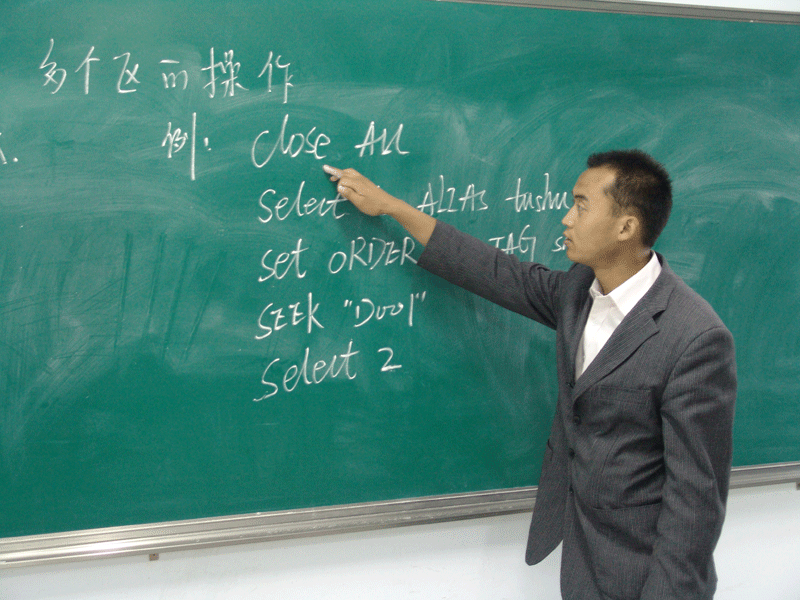 多个区的操作
例: Close All
Select ALIAS tushu
Set ORDER TAG
SEEK "D001"
Select 2